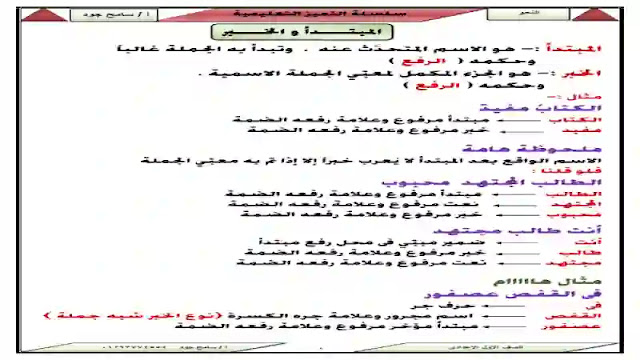 النحو
سلسلة التميز التعليمية
أ / سامح جود
المبتدأ و الخبر
المبتدأ :- هو الاسم المتحدث عنه . وتبدأ به الجملة غالباً
وحكمه ( الرفع )
الخبر :- هو الجزء المكمل لمعني الجملة الاسمية .
وحكمه ( الرفع )
مثال :-
الكتاب مفيد
الكتاب ← مبتدأ مرفوع وعلامة رفعه الضمة
مفيد ← خبر مرفوع وعلامة رفعه الضمة
ملحوظة هامة
الاسم الواقع بعد المبتدأ لا يُعرب خبراً إلا إذا تم به معني الجملة
فلو قلنا :
الطالب المجتهد محبوب
الطالب ← مبتدأ مرفوع وعلامة رفعه الضمة
المجتهد ← نعت مرفوع وعلامة رفعه الضمة
محبوب ← خبر مرفوع وعلامة رفعه الضمة
أنت طالب مجتهد
أنت ← ضمير مبني فى محل رفع مبتدأ
طالب ← خبر مرفوع وعلامة رفعه الضمة
مجتهد ← نعت مرفوع وعلامة رفعه الضمة
مثال هااااام
فى القفص عصفور
فى ← حرف جر
القفص ← اسم مجرور وعلامة جره الكسرة ( نوع الخبر شبه جملة )
عصفور ← مبتدأ مؤخر مرفوع وعلامة رفعه الضمة
الصف الأول الإعدادى
أ / سامح جود